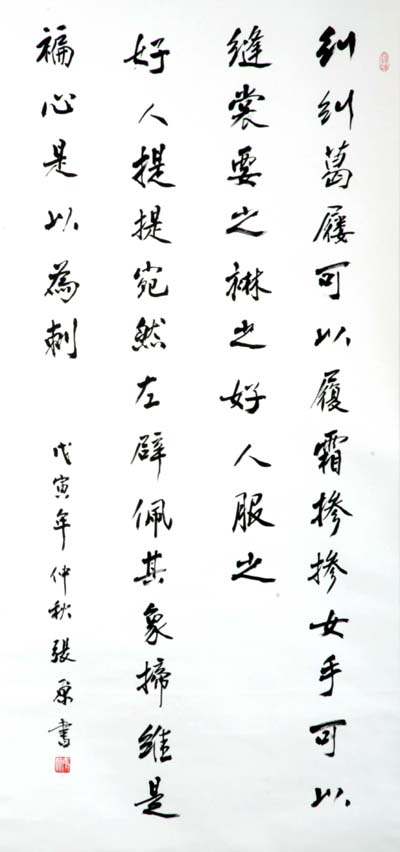 糾糾葛屨可以履霜掺掺女手可以
縫裳要之襋之好人服之
好人提提宛然左辟佩其象揥維是
褊心是以為刺
戊寅年仲秋張書